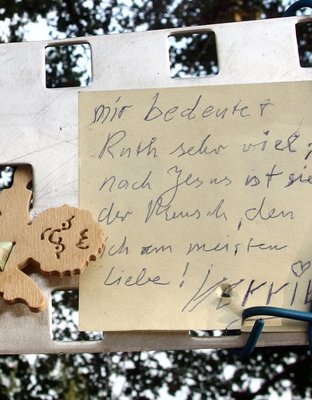 mir bedeutet
Ruth sehr viel,
nach Jesus ist sie
der Mensch, den
ich am meisten
Liebe!